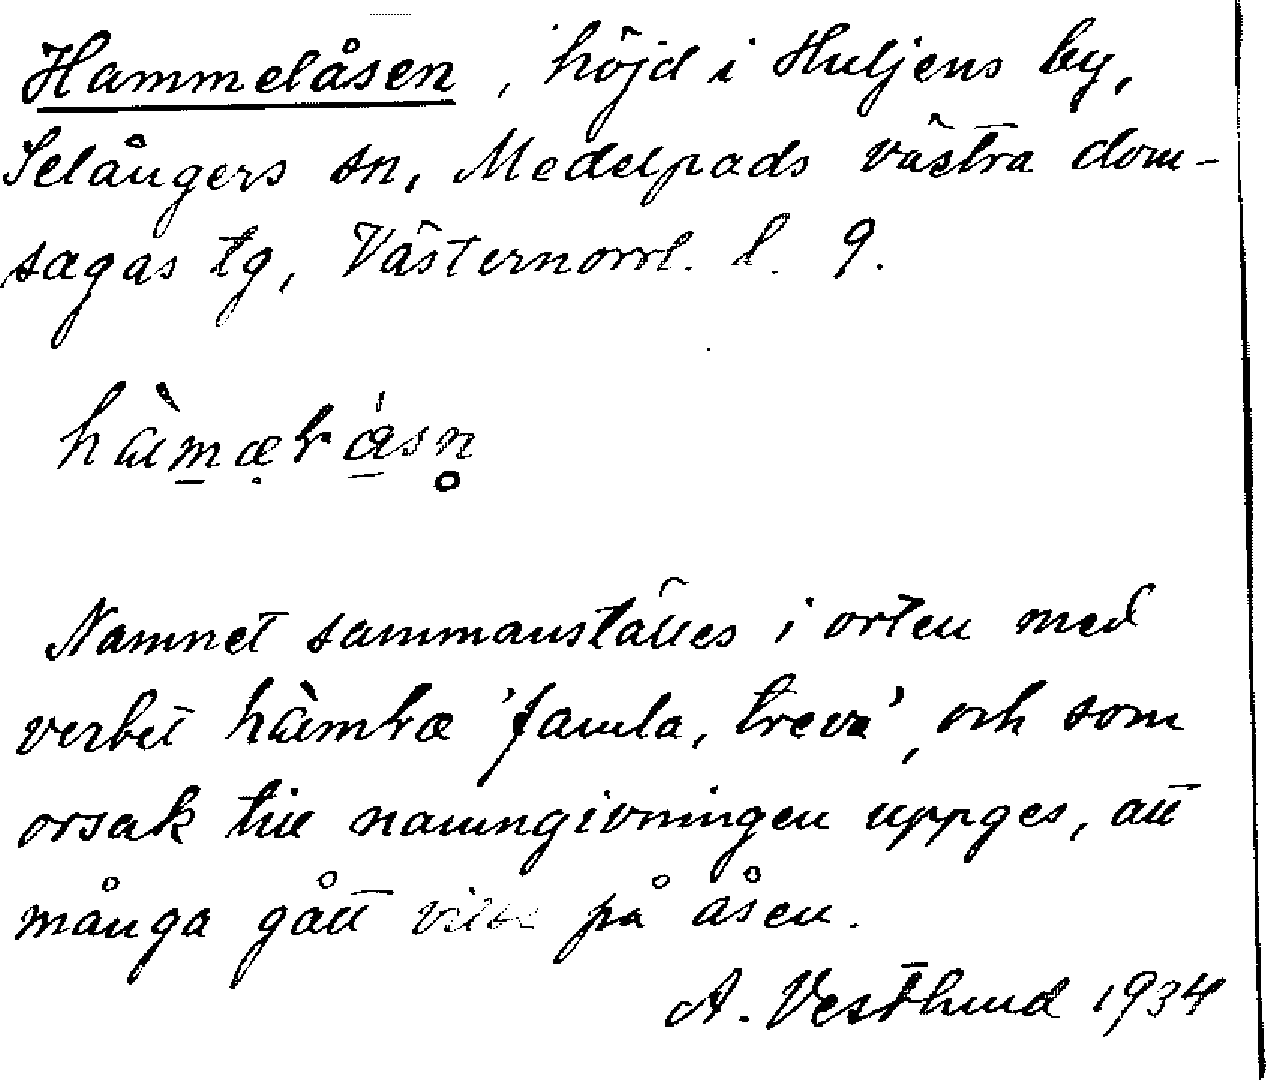 Hammelåsen, höjd i Huljens by,
Selångers sn, Medelpads västra dom-
sagas tg, Västernorrl. l. 9.
Namnet sammanställes i orten med
verbet 'famla, treva', och som
orsak till namngivningen uppges, att
många gått vilse på åsen.
A. Vestlund 1934